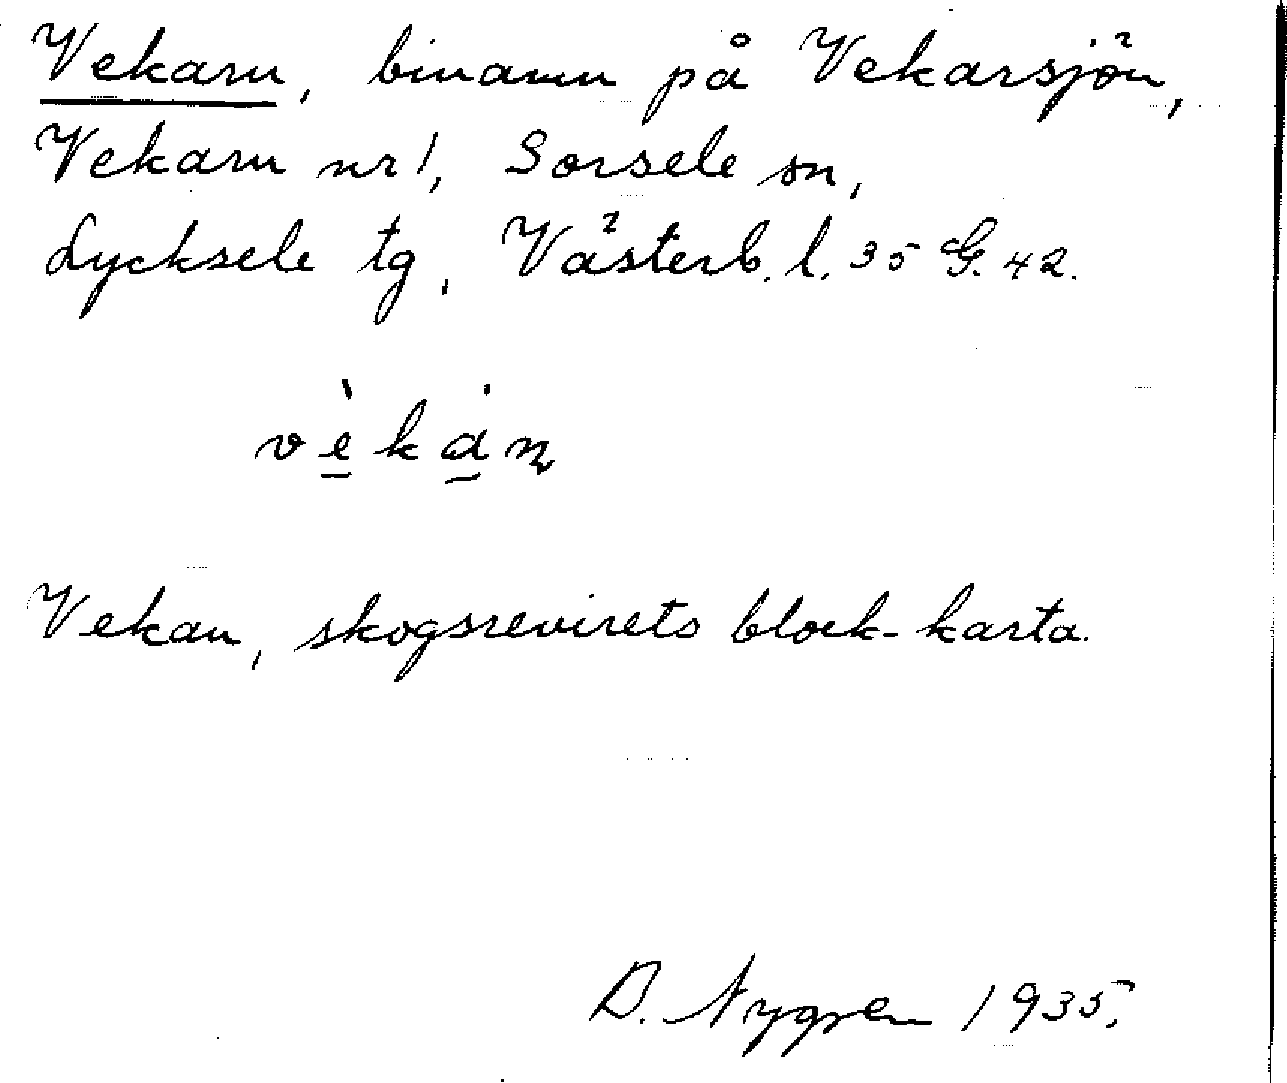 Vekarn, binamn på Vekarsjön,
Vekarn nr 1, Sorsele sn,
Lycksele tg, Västerb. l. 35 G. 42.
vè̱kȧ̱ɳ
Vekan, skogsrevirets block-karta.
D. Nygren 1935.